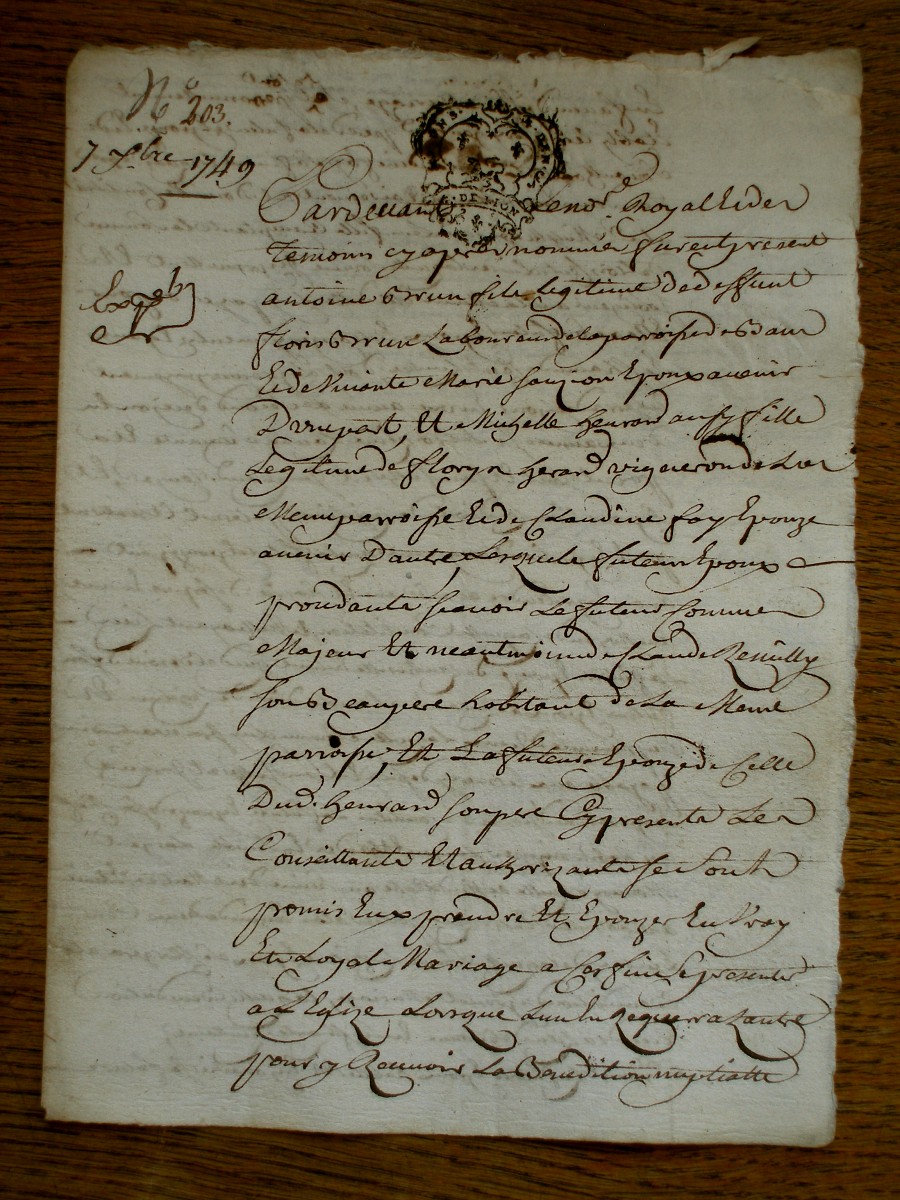 N° 203.
7 7bre 1749
Expeh
DE LION
Pardevant Le nore Royal Et des
temoins cy apres nommes furent present
antoine Brun fils legitime de deffunt
floris Brun Laboureur de la parroisse de
Et de vivante Marie Epoux avenir
D'une part, Et Michelle henrard aussy fille
Legitime de florys herard vigneron de
Meme parroisse Et de Claudine fay Epouze
avenir D'autre, Lesquels futeurs Epoux
proceddants scavoir Le futeur Comme
Majeur Et neantmoins de Claude
son Beaupere habitant de La Meme
parroisse, Et La future Epouze de Celle
Dud. henrard son pere Cy present Les
Conseillants Et authorizants se sont
promis Eux prendre Et Epouzer En vray
Et Loyal Mariage a Cet fin se presenter
a L'Eglize Lorsque L'un En Requerra L'autre
pour y Recevoir La Benedition nuptialle